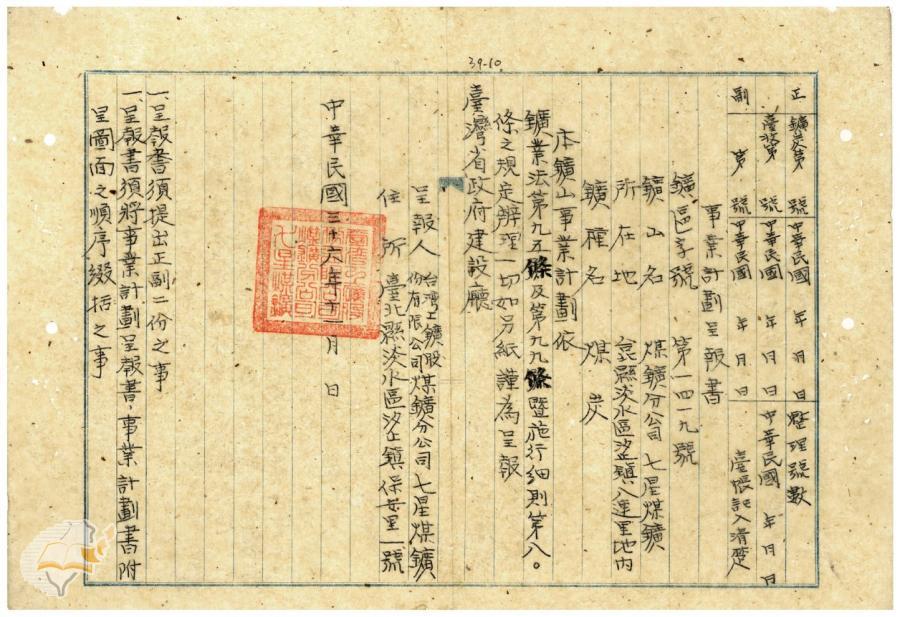 39-10
正 鑛炭第 號 中華民國 年 月 日 整理號數
臺北第 號 中華民國 年 月 日 中華民國 年 月 日
副 第 號 中華民國 年 月 日 臺帳記入清楚
事業計劃呈報書
鑛區字號 第一四一九號
鑛山名 煤鑛分公司七星煤鑛
所在地 縣淡水區汐止鎮八連里地內
鑛種名 煤炭
本鑛山事業計劃依
鑛業法第九五條及第九九條暨施行細則第八〇
條之規定辦理一切如另紙謹為呈報
臺灣省政府建設廳
呈報人 台灣工鑛股份有限公司煤鑛分公司七星煤鑛
住所 臺北縣淡水區汐止鎮保安里一號
中華民國三十六年十二月 日
一、呈報書須提出正副二份之事
一、呈報書須將事業計劃呈報書、事業計劃書附
呈圖面之順序綴括之事